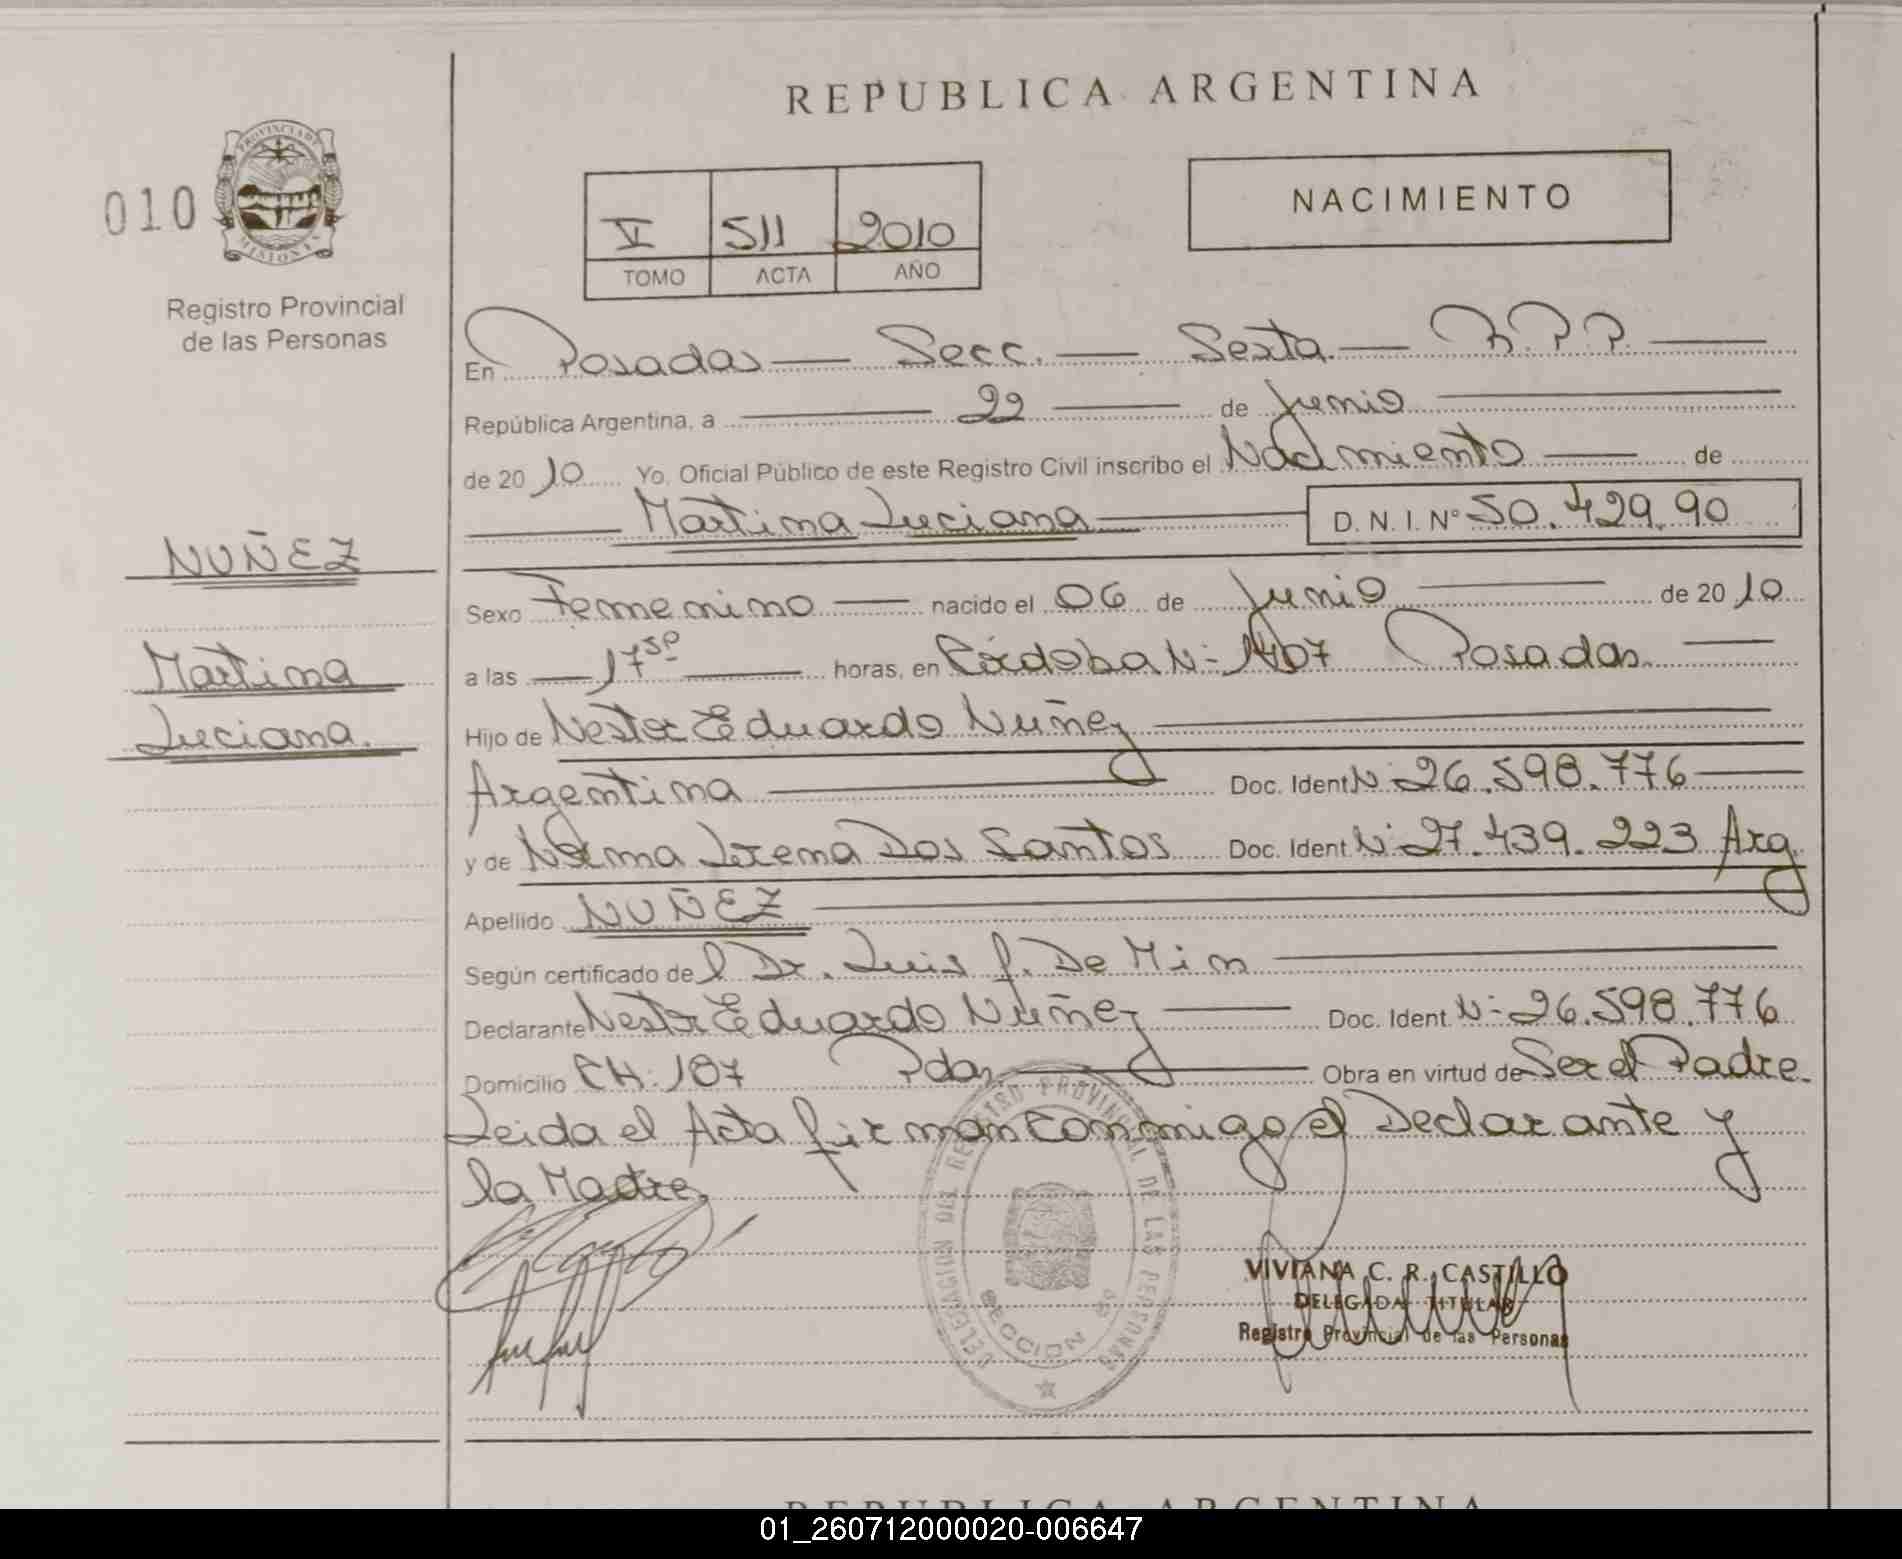 REPUBLICA ARGENTINA
010
PROVINCIA DE MISIONES
Registro Provincial
de las Personas
V 511 2010
TOMO ACTA AÑO
NACIMIENTO
En Posadas Secc. Sexta R.P.P.
República Argentina, a 22 de Junio
de 2010 Yo, Oficial Público de este Registro Civil inscribo el Nacimiento de
Martina Luciana D. N. I. Nº 50.429.90
NUÑEZ
Martina
Luciana.
Sexo Femenino nacido el 06 de Junio de 2010
a las 17 horas, en Córdoba Nº 1407 Posadas
Hijo de Nestor Eduardo Nuñez
Argentina Doc. Ident Nº 26.598.776
y de Norma Lorena Dos Santos Doc. Ident Nº 27.439.223 Arg
Apellido NUÑEZ
Según certificado del Dr. Luis f. De Min
Declarante Nestor Eduardo Nuñez Doc. Ident Nº 26.598.776
Domicilio CH. 187 Pdas Obra en virtud de Ser el Padre.
Leida el Acta firman conmigo el Declarante y
la Madre.
DELEGACION DEL REGISTRO PROVINCIAL DE LAS PERSONAS
SECCION 6º
VIVIANA C. R. CASTILLO
DELEGADA TITULAR
Registro Provincial de las Personas
REPUBLICA ARGENTINA
01_260712000020-006647